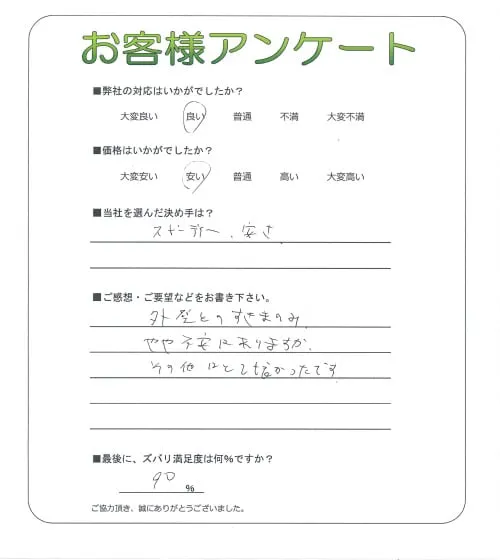 お客様アンケート
■弊社の対応はいかがでしたか?
大変良い 良い 普通 不満 大変不満
■価格はいかがでしたか?
大変安い 安い 普通 高い 大変高い
■当社を選んだ決め手は?
スピーディー、安さ
■ご感想・ご要望などをお書き下さい。
外壁とのすきまのみ、
やや不安はありますが、
その他はとても良かったです
■最後に、ズバリ満足度は何%ですか?
90 %
ご協力頂き、誠にありがとうございました。